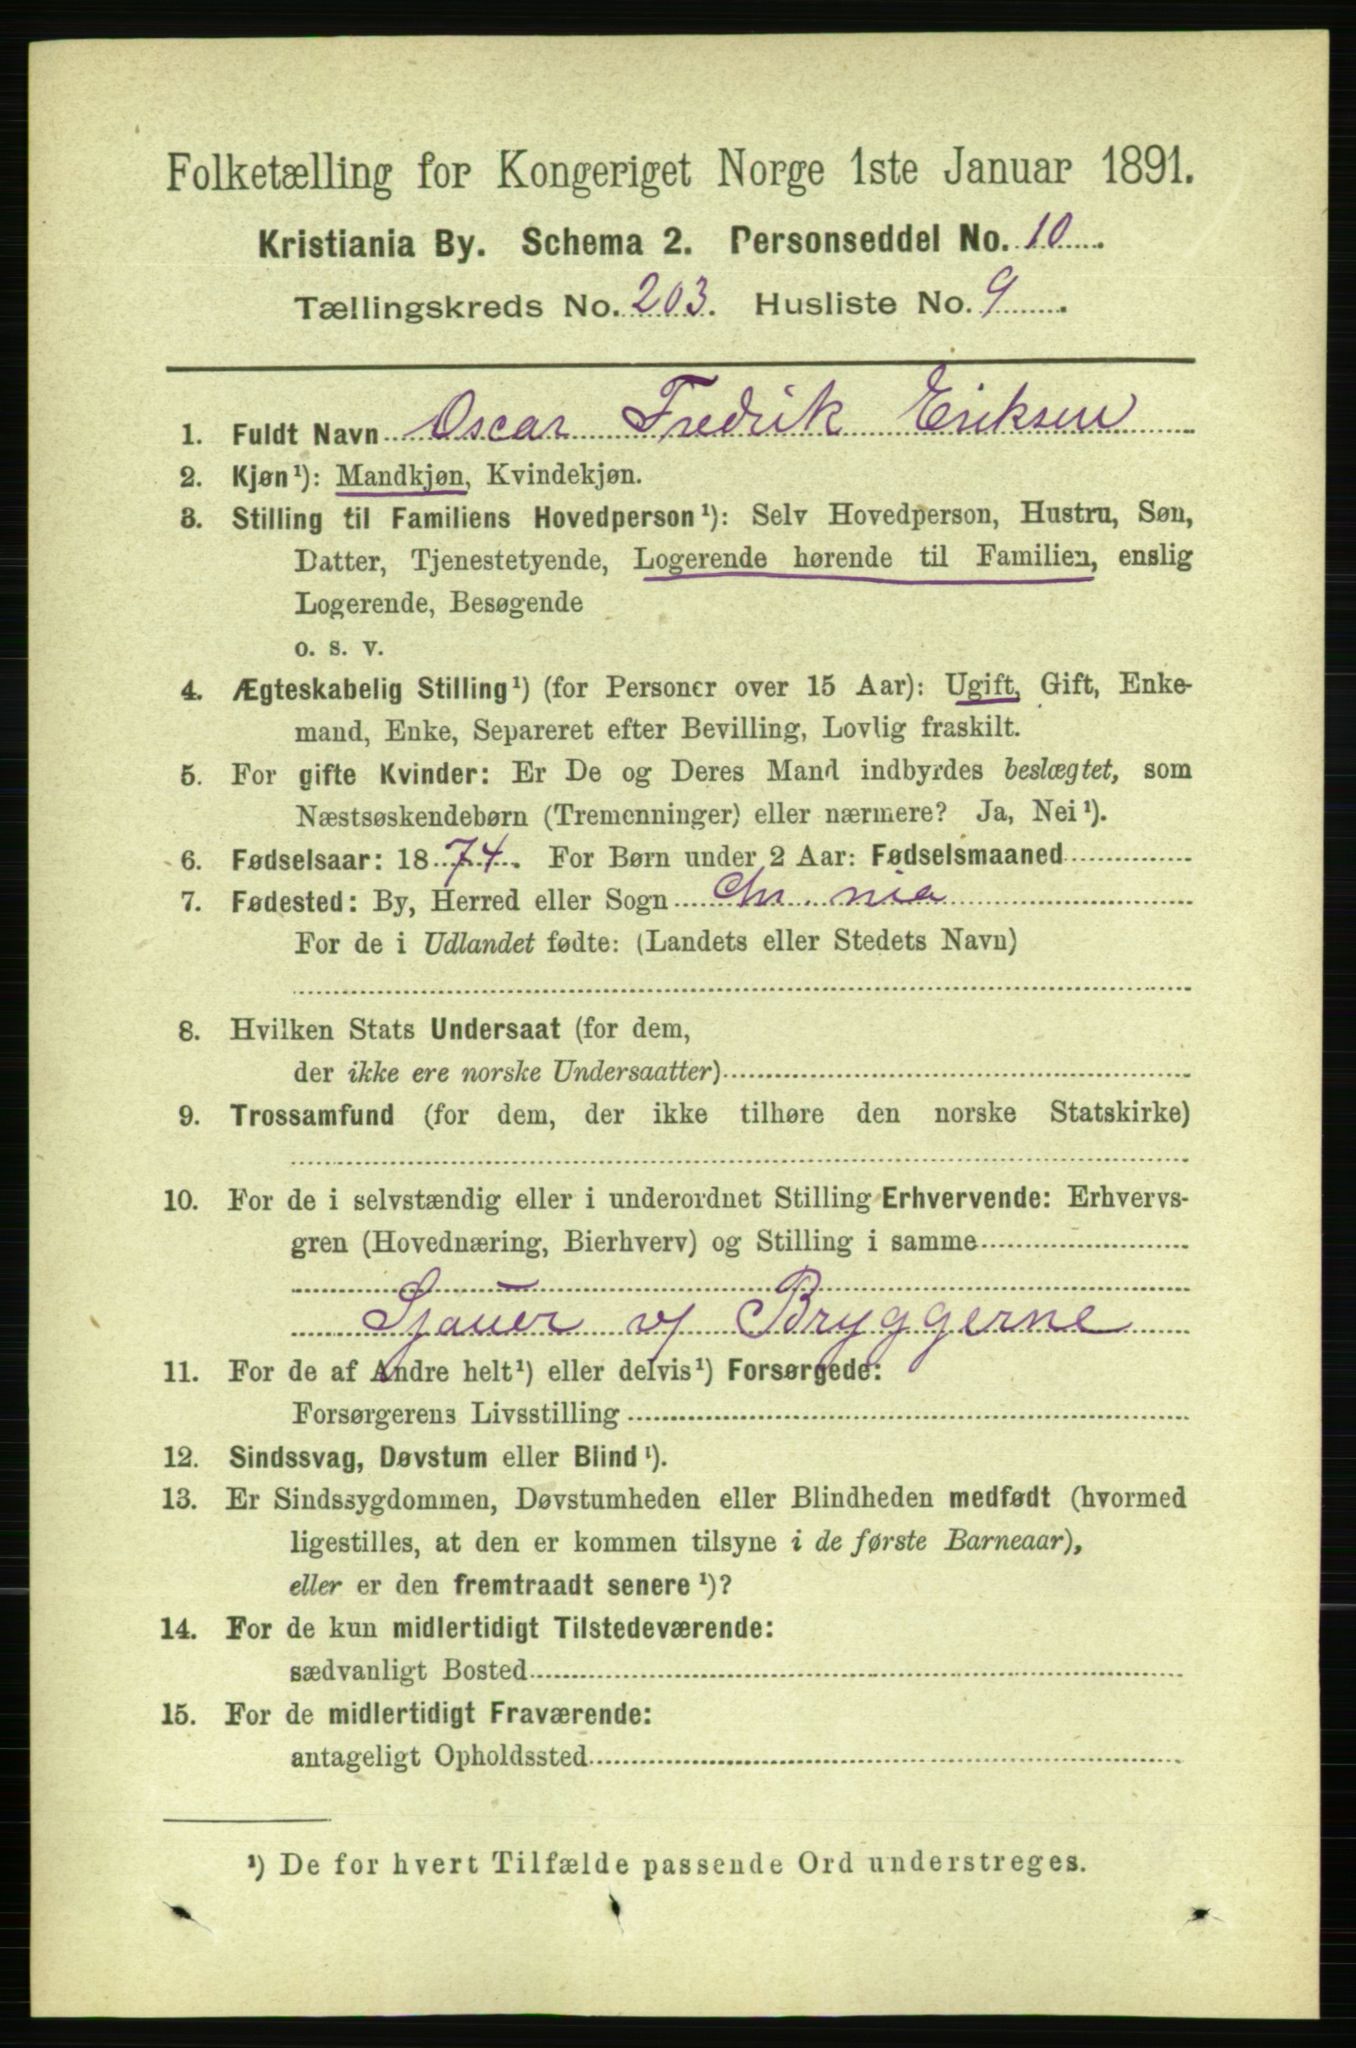 Folketælling for Kongeriget Norge 1ste Januar 1891.
Kristiania By. Schema 2. Personseddel No. 10.
Tællingskreds No. 203. Husliste No. 9.
1. Fuldt Navn Oscar Fredrik Eriksen
2. Kjøn¹): Mandkjøn, Kvindekjøn.
3. Stilling til Familiens Hovedperson¹): Selv Hovedperson, Hustru, Søn,
Datter, Tjenestetyende, Logerende hørende til Familien, enslig
Logerende, Besøgende
o. s. v.
4. Ægteskabelig Stilling¹) (for Personer over 15 Aar): Ugift, Gift, Enke-
mand, Enke, Separeret efter Bevilling, Lovlig fraskilt.
5. For gifte Kvinder: Er De og Deres Mand indbyrdes beslægtet, som
Næstsøskendebørn (Tremenninger) eller nærmere? Ja, Nei¹).
6. Fødselsaar: 1874. For Børn under 2 Aar: Fødselsmaaned
7. Fødested: By, Herred eller Sogn Chr.nia
For de i Udlandet fødte: (Landets eller Stedets Navn)
8. Hvilken Stats Undersaat (for dem,
der ikke ere norske Undersaatter)
9. Trossamfund (for dem, der ikke tilhøre den norske Statskirke)
10. For de i selvstændig eller i underordnet Stilling Erhvervende: Erhvervs-
gren (Hovednæring, Bierhverv) og Stilling i samme
Sjauer v/ Bryggerne
11. For de af Andre helt¹) eller delvis¹) Forsørgede:
Forsørgerens Livsstilling
12. Sindssvag, Døvstum eller Blind¹).
13. Er Sindssygdommen, Døvstumheden eller Blindheden medfødt (hvormed
ligestilles, at den er kommen tilsyne i de første Barneaar),
eller er den fremtraadt senere¹)?
14. For de kun midlertidigt Tilstedeværende:
sædvanligt Bosted
15. For de midlertidigt Fraværende:
antageligt Opholdssted
¹) De for hvert Tilfælde passende Ord understreges.